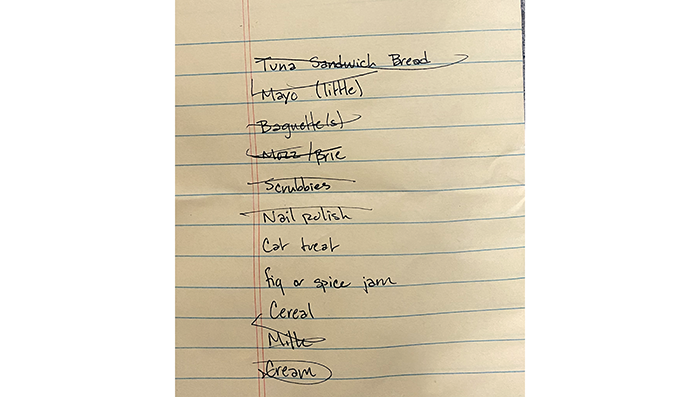 Tuna Sandwich Bread
Mayo (little)
Baguette(s)
Mozz/Brie
Scrubbies
Nail polish
Cat treat
fig or spice jam
Cereal
Milk
Cream